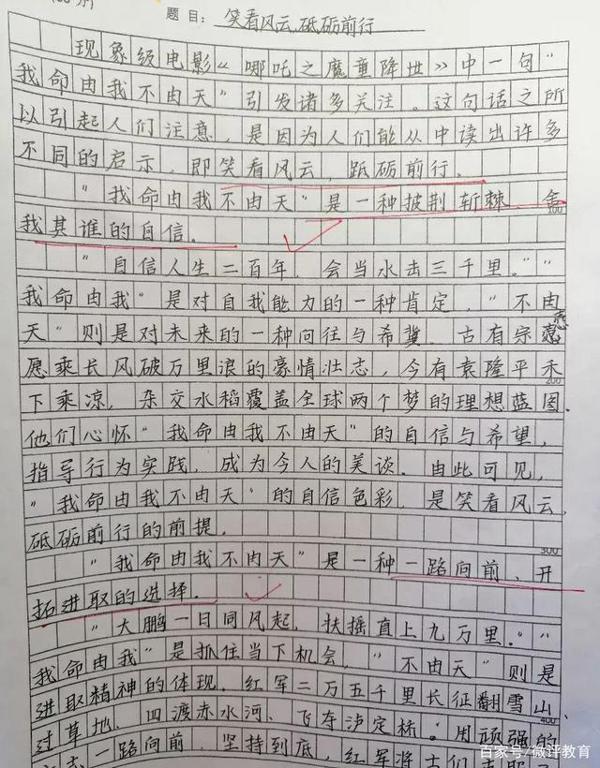 题目：笑看风云,砥砺前行
现象级电影《哪吒之魔童降世》中一句“
我命由我不由天”引发诸多关注。这句话之所
以引起人们注意，是因为人们能从中读出许多
不同的启示，即笑看风云，砥砺前行。
“我命由我不由天”是一种披荆斩棘、舍
100
我其谁的自信。
“自信人生二百年，会当水击三千里。”“
我命由我”是对自我能力的一种肯定，“不由
天”则是对未来的一种向往与希冀。古有宗悫
愿乘长风破万里浪的豪情壮志，今有袁隆平禾
200
下乘凉，杂交水稻覆盖全球两个梦的理想蓝图.
他们心怀“我命由我不由天”的自信与希望，
指导行为实践，成为今人的美谈。由此可见，
“我命由我不由天”的自信色彩，是笑看风云，
砥砺前行的前提。
300
“我命由我不由天”是一种一路向前、开
拓进取的选择。
“大鹏一日同风起，扶摇直上九万里。”“
我命由我”是抓住当下机会，“不由天”则是
进取精神的体现。红军二万五千里长征翻雪山、
400
过草地、四渡赤水河、飞夺泸定桥。用顽强的
一路向前，坚持到底，红军将士们
百家号/微评教育